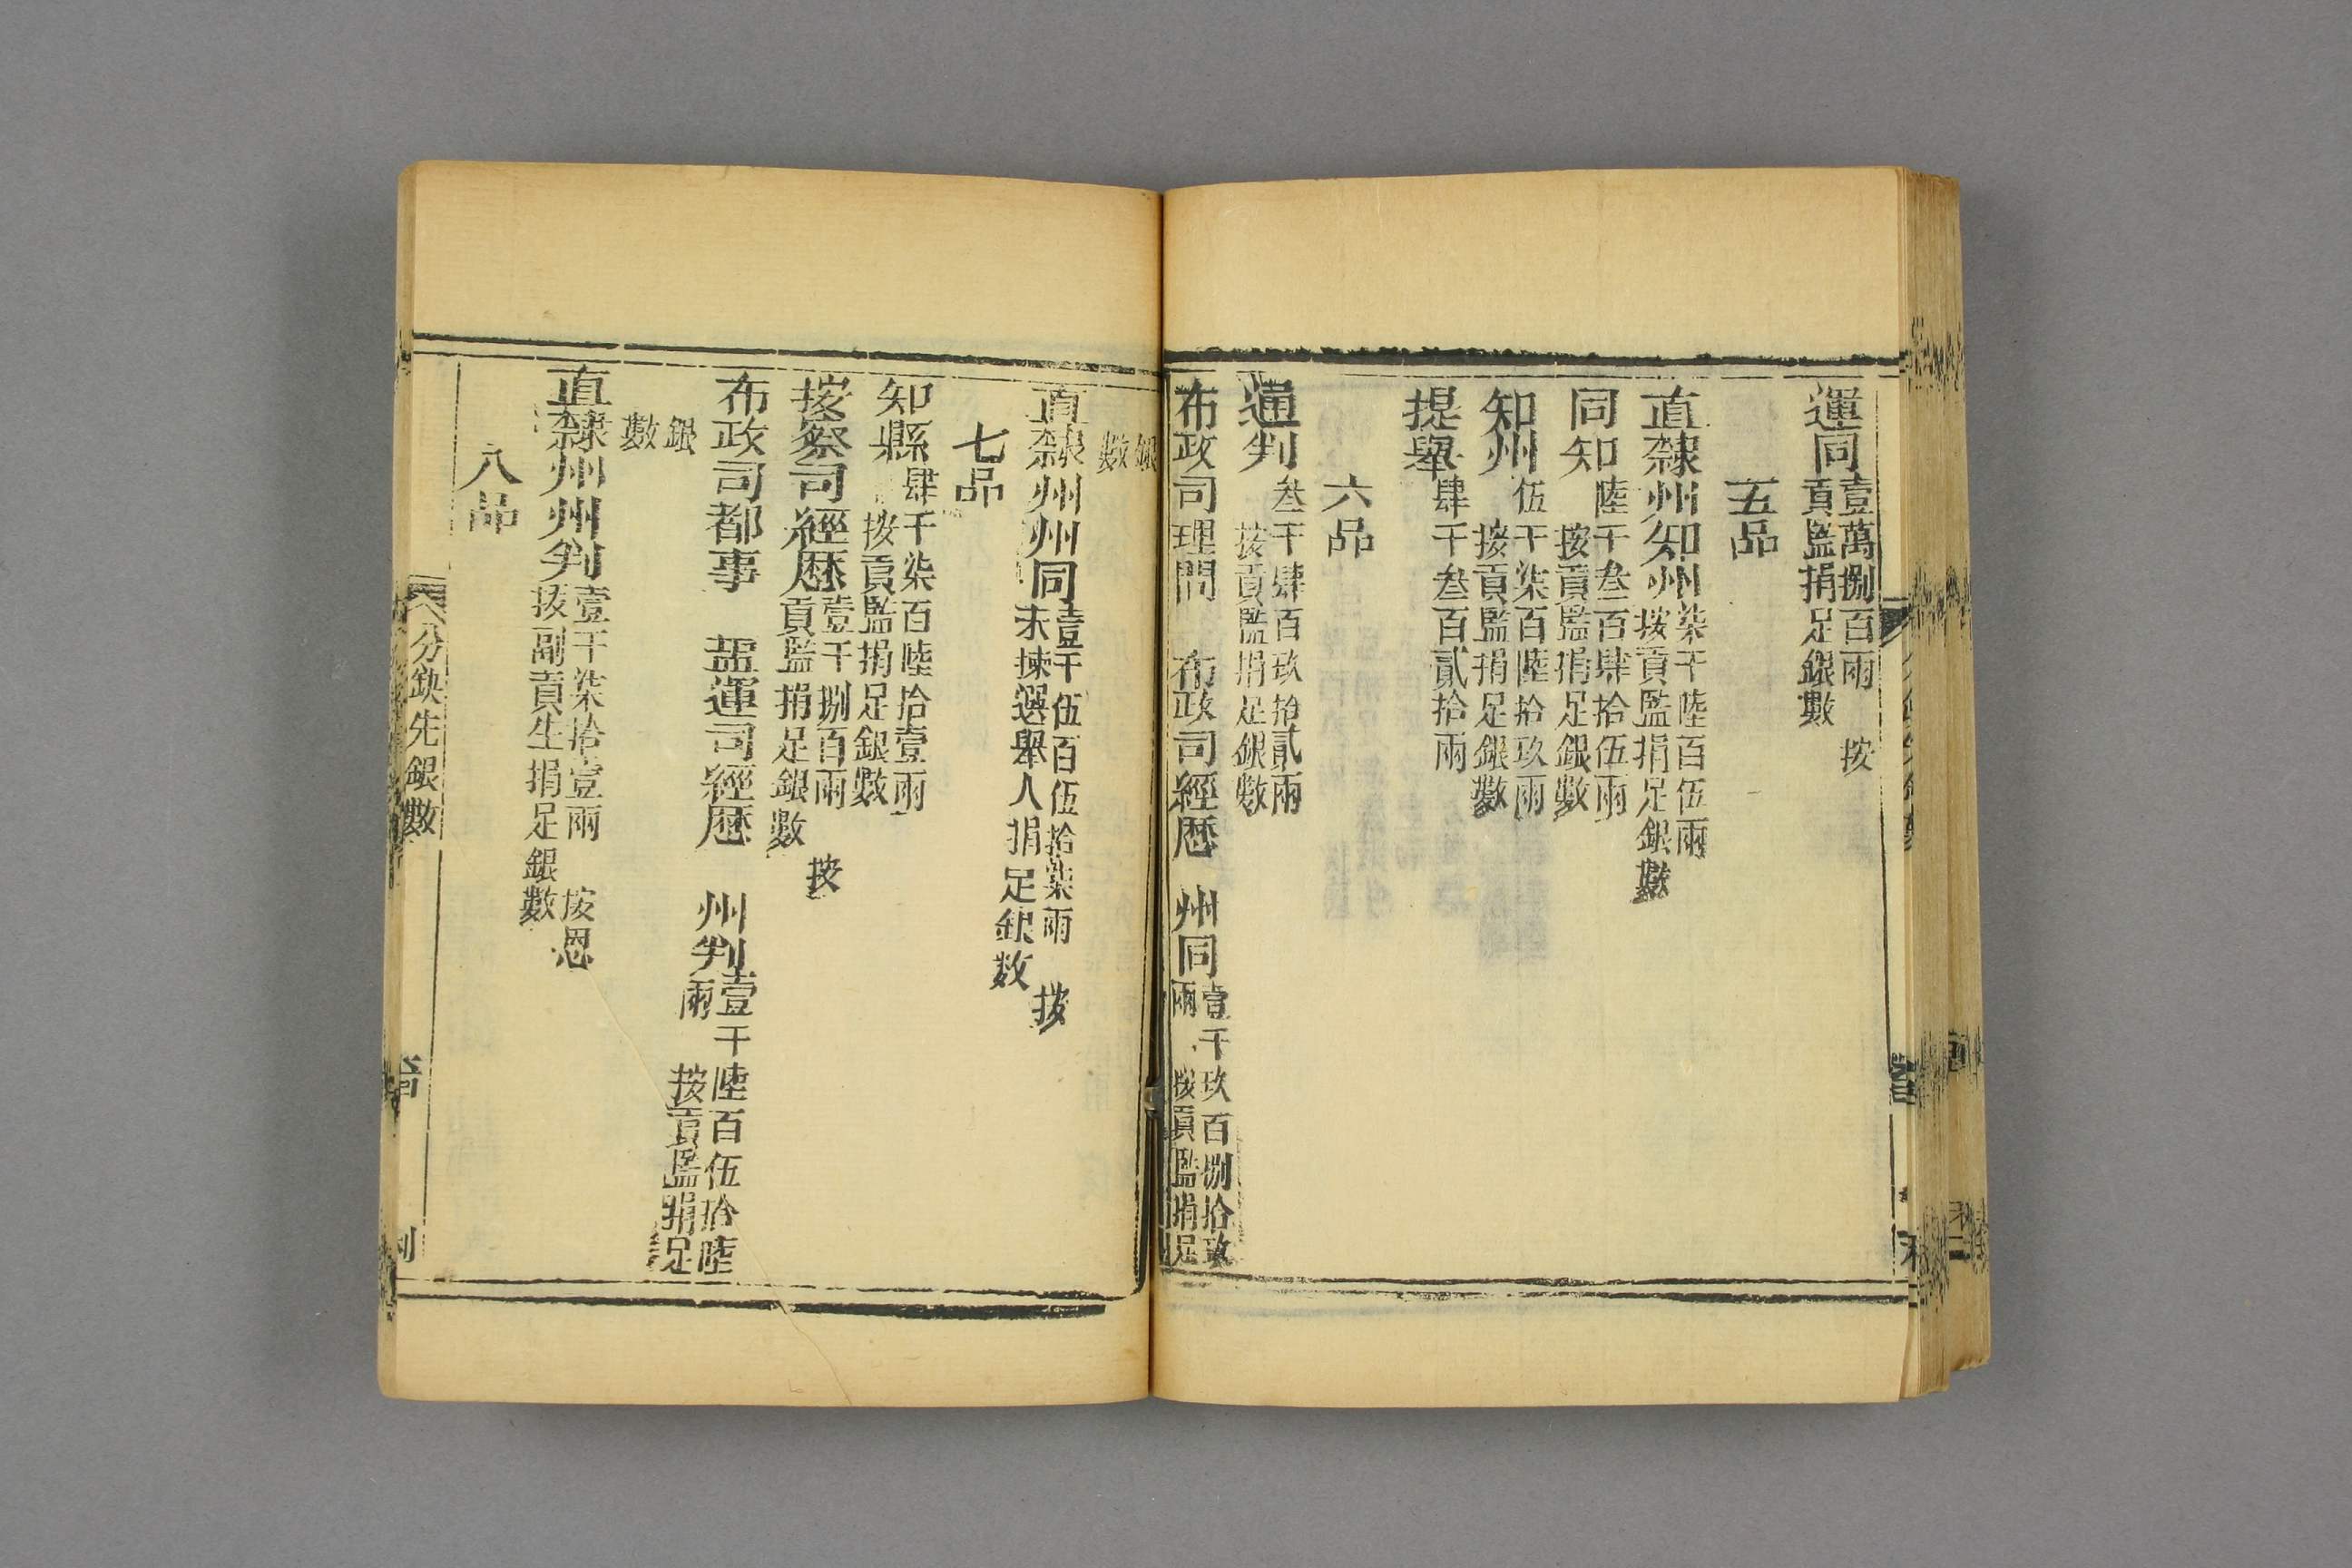 運同壹萬捌百兩　按貢監捐足銀數
五品
直隸州知州柒千陸百伍兩按貢監捐足銀數
同知陸千叁百肆拾伍兩按貢監捐足銀數
知州伍千柒百陸拾玖兩按貢監捐足銀數
提舉肆千叁百貳拾兩
六品
通判叁千肆百玖拾貳兩按貢監捐足銀數
布政司理問　布政司經歷　州同壹千玖百捌拾玖兩　按貢監捐足
銀數
直隸州州同壹千伍百伍拾柒兩　按未揀選舉人捐足銀数
七品
知縣肆千柒百陸拾壹兩按貢監捐足銀數
按察司經歷壹千捌百兩　按貢監捐足銀數
布政司都事　鹽運司經歷　州判壹千陸百伍拾陸兩　按貢監捐足
銀數
直隸州州判壹千柒拾壹兩　按恩拔副貢生捐足銀數
八品
分缺先銀數